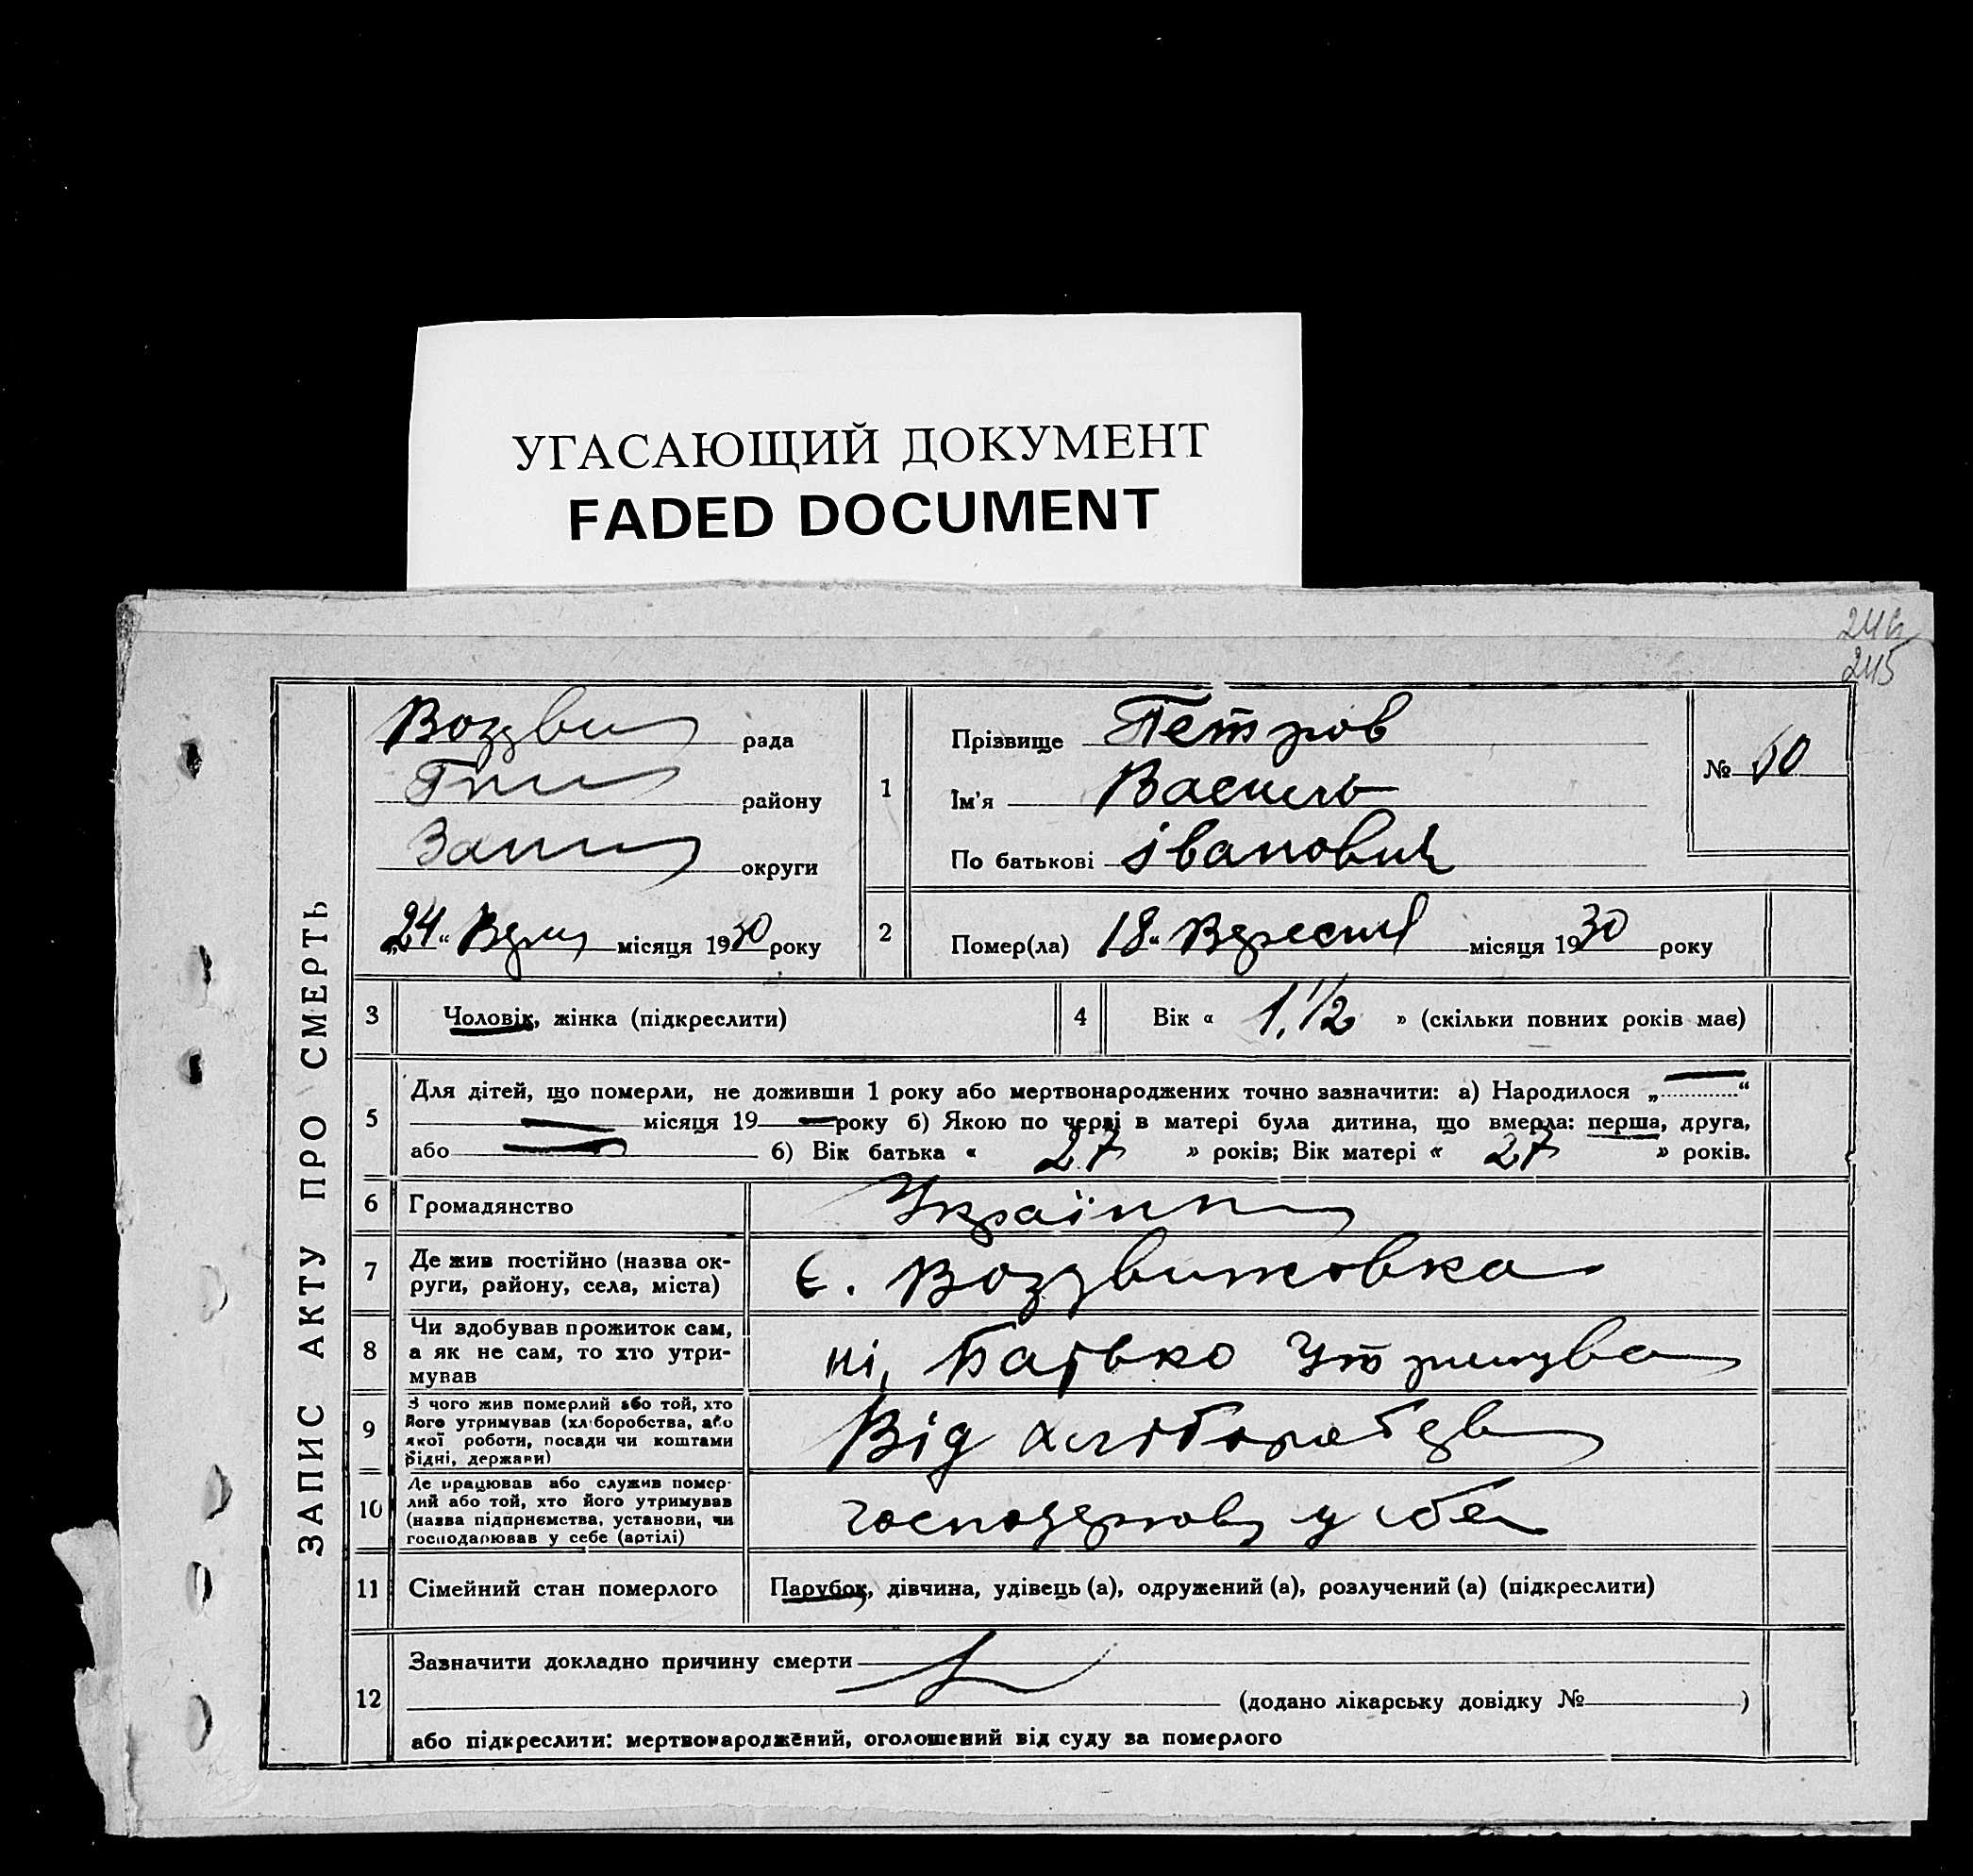 УГАСАЮЩИЙ ДОКУМЕНТ
FADED DOCUMENT
245
ЗАПИС АКТУ ПРО СМЕРТЬ
рада
району
округи
„24“ місяця 1930 року
1
Прізвище Петров
Ім'я Василь
По батькові івanович
№ 60
2
Помер(ла) 18 “ Вересня місяця 1930 року
3 Чоловік, жінка (підкреслити)
4 Вік « 1. 1/2 » (скільки повних років має)
5 Для дітей, що померли, не доживши 1 року або мертвонароджених точно зазначити: а) Народилося „ “
місяця 19 року б) Якою по черзі в матері була дитина, що вмерла: перша, друга,
або б) Вік батька « 27 » років; Вік матері « 27 » років.
6 Громадянство
7 Де жив постійно (назва ок-
руги, району, села, міста)
с. Воздвижовка
8 Чи здобував прожиток сам,
а як не сам, то хто утри-
мував
ні, Батько
9 З чого жив померлий або той, хто
його утримував (хліборобства, або
якої роботи, посади чи коштами
рідні, держави)
Від
10 Де працював або служив помер-
лий або той, хто його утримував
(назва підприємства, установи, чи
господарював у себе (артілі)
у себе
11 Сімейний стан померлого Парубок, дівчина, удівець (а), одружений (а), розлучений (а) (підкреслити)
12 Зазначити докладно причину смерти
(додано лікарську довідку № )
або підкреслити: мертвонароджений, оголошений від суду за померлого